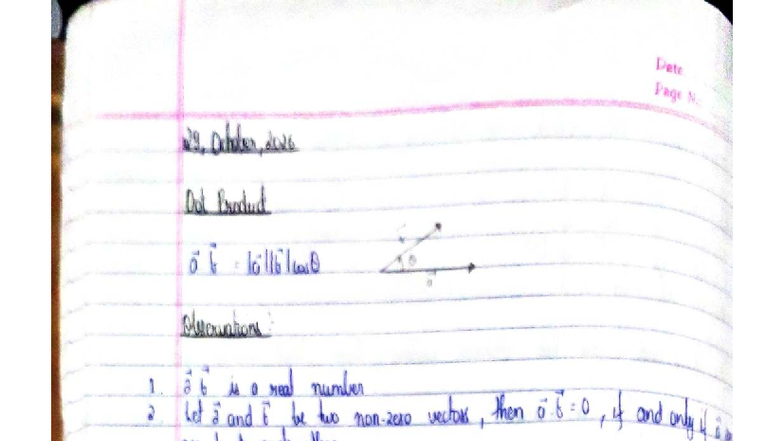 Date
Page N
29, October, 2026
Dot Product
a⃗ b⃗ = |a⃗||b⃗|cosθ
θ
a⃗
Observations :
1. a⃗ b⃗ is a real number
2. Let a⃗ and b⃗ be two non-zero vectors, then a⃗ . b⃗ = 0, if and only if a⃗